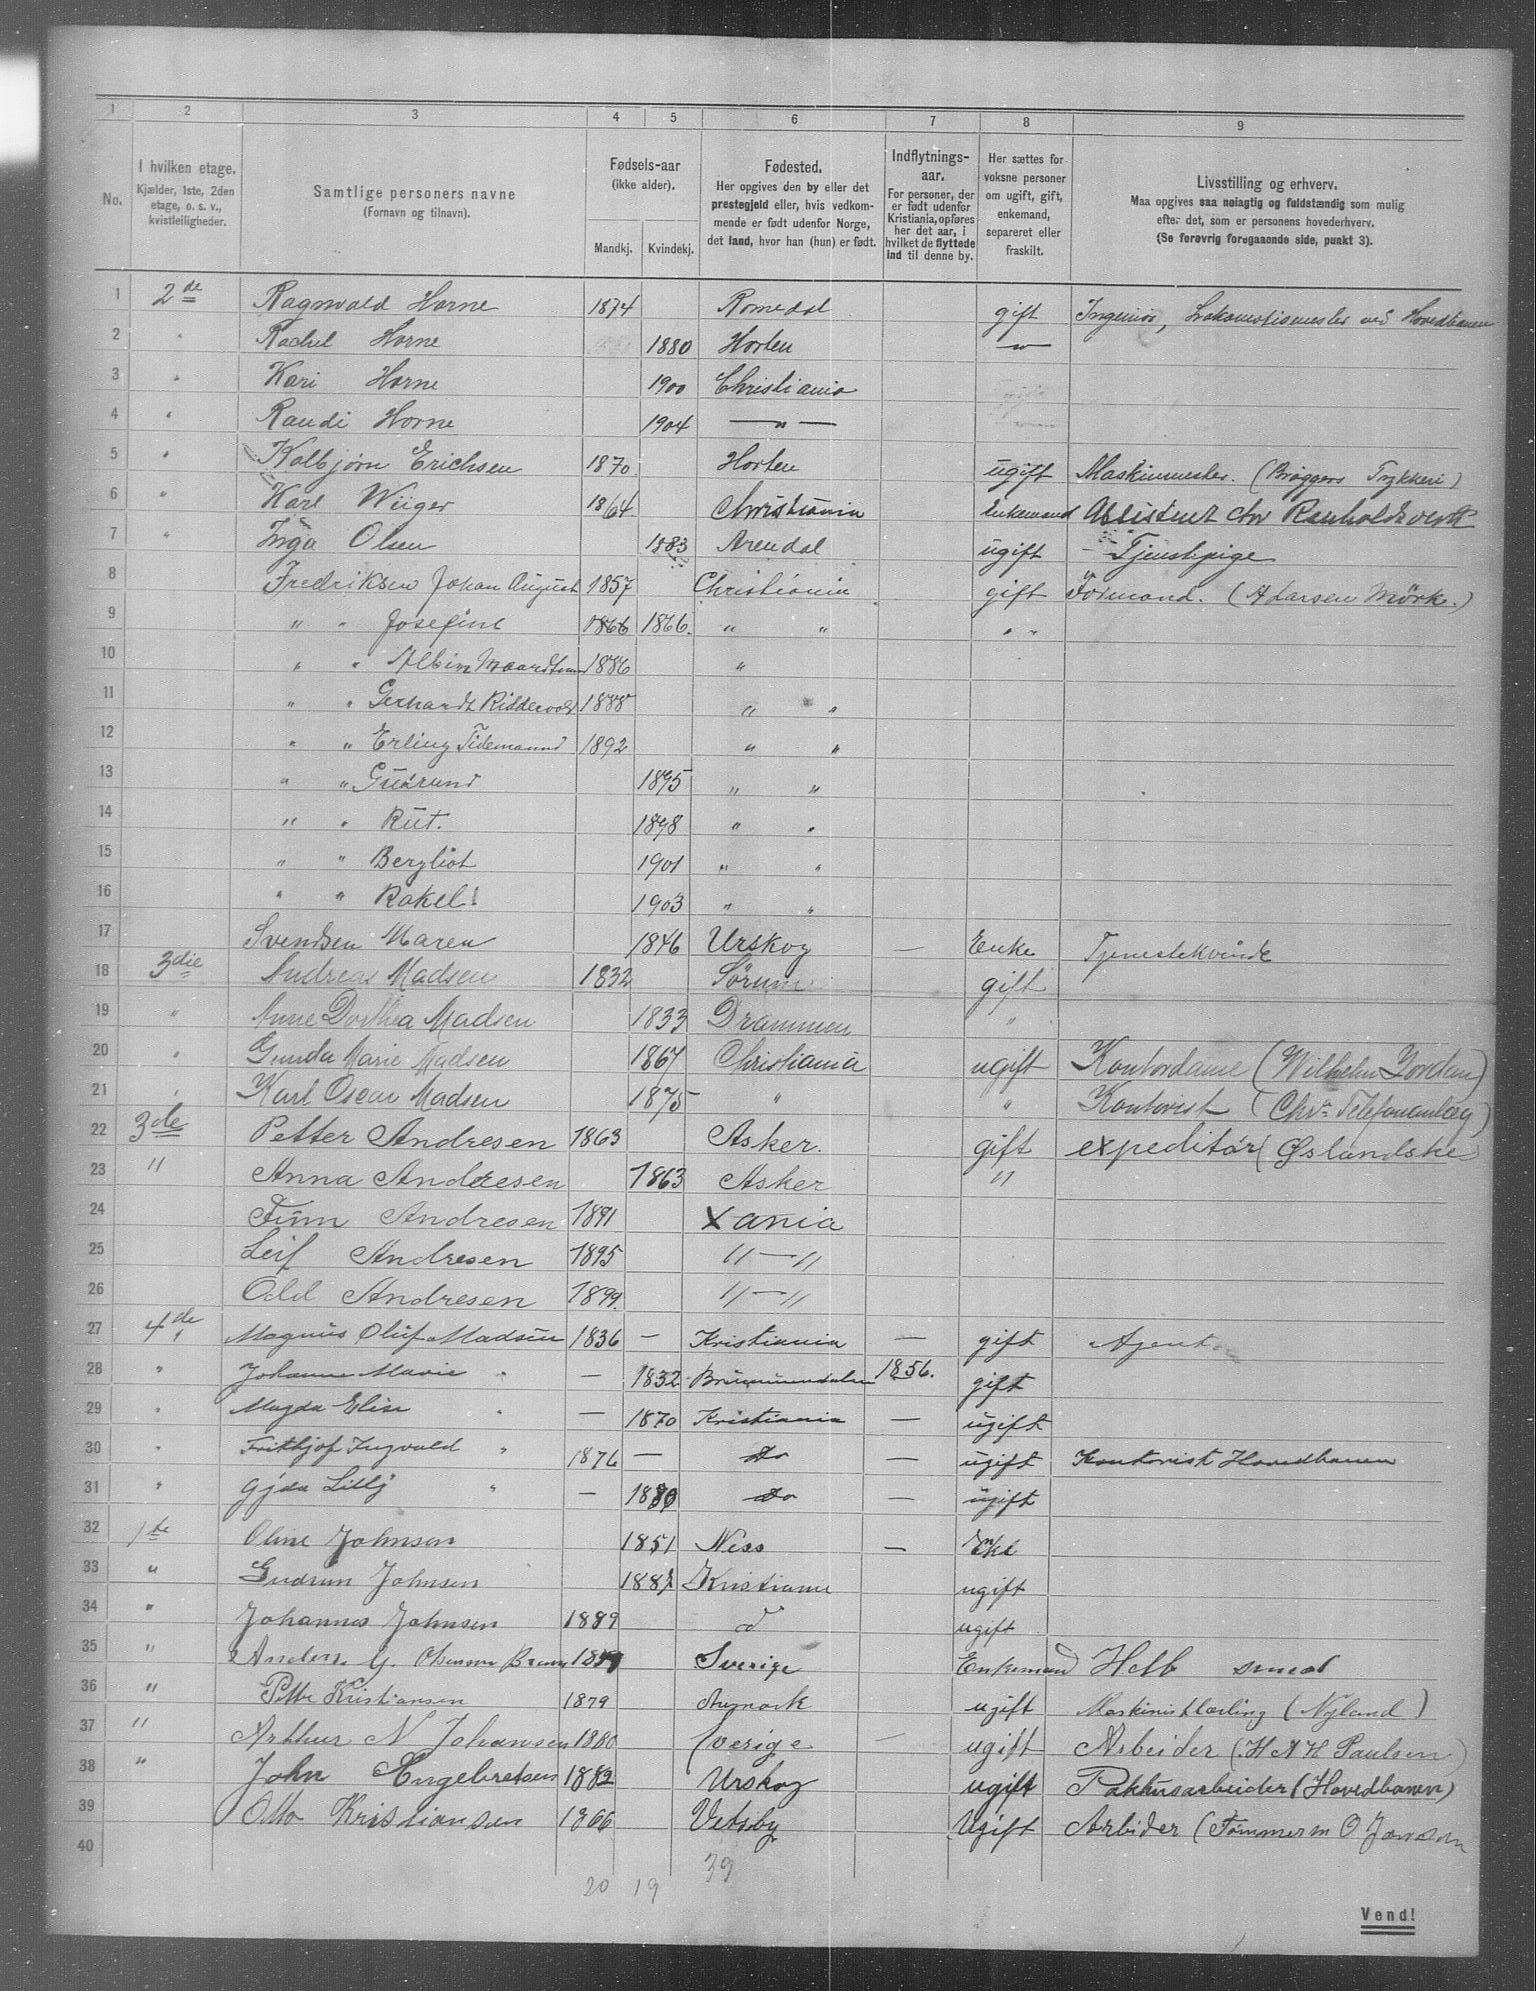 1 2 3 4 5 6 7 8 9
No.
I hvilken etage.
Kjælder, 1ste, 2den
etage, o. s. v.,
kvistleiligheder.
Samtlige personers navne
(Fornavn og tilnavn).
Fødsels-aar
(ikke alder).
Mandkj. Kvindekj.
Fødested.
Her opgives den by eller det
prestegjeld eller, hvis vedkom-
mende er født udenfor Norge,
det land, hvor han (hun) er født.
Indflytnings-
aar.
For personer, der
er født udenfor
Kristiania, opføres
her det aar, i
hvilket de flyttede
ind til denne by.
Her sættes for
voksne personer
om ugift, gift,
enkemand,
separeret eller
fraskilt.
Livsstilling og erhverv.
Maa opgives saa nøiagtig og fuldstændig som mulig
efter det, som er personens hovederhverv.
(Se forøvrig foregaaende side, punkt 3).
1 2de Ragnvald Horne 1874 Romedal gift Ingeniør, Lokomotivmester ved Hovedbanen
2 " Rachel Horne 1880 Horten — " —
3 " Kari Horne 1900 Christiania
4 " Randi Horne 1904 — " —
5 " Kolbjørn Erichsen 1870 Horten ugift Maskinmester. (Brøggers Trykkeri)
6 " Karl Wiiger 1864 Christiania Enkemand Assistent Renholdsverk
7 " Inga Olsen 1883 Arendal ugift - Tjenestpige
8 Fredriksen Johan August 1857 Christiania gift Formand. (A Larsen Mörk.)
9 " " Josefine 1866 1866. " " " "
10 " " Albin 1886 "
11 " " Gerhardt Riddervold 1888 " "
12 " " Erling Tidemannd 1892 " "
13 " " Gudrund 1895 " "
14 " " Rut. 1898 " "
15 " " Bergliot 1901 " "
16 " " Rakel. 1903 " "
17 Svendsen Maren 1846 Urskog — Enke Tjenestekvinde
18 3die Andreas Madsen 1832 Sørum gift
19 " Anne Dorthea Madsen 1833 Drammen "
20 " Gunda Marie Madsen 1867 Christiania ugift Kontordame (Wilhelm Jordan)
21 " Karl Oscar Madsen 1875 " " Kontorist (Chr. Telefonanlæg)
22 3de Petter Andresen 1863 Asker. gift expeditör (Øslandske
23 " Anna Andresen 1863 Asker "
24 Finn Andresen 1891 Xania
25 Leif Andresen 1895 " — "
26 Odd Andresen 1899. " — "
27 4de Magnus Oluf Madsen 1836 — Kristiania — gift Agent
28 " Johanne Marie " — 1832 Brummundalen 1856. gift
29 " Magda Elise " — 1870 Kristiania — ugift
30 " Frithjof Ingvald " 1876 — Do — ugift Kontorist Hovedbanen
31 " Gyda Lilly " — 1880 Do — ugift
32 1te Oline Johnsen 1851 Ness — Enke
33 " Gudrun Johnsen 1882 Kristiania ugift
34 " Johannes Johnsen 1889 d ugift
35 " Anders G. 1859 Sverige Enkemand smed
36 " Petter Kristiansen 1879 ugift Maskinistlærling (Nyland)
37 " Arthur N Johansen 1880 Sverige — ugift Arbeider (H A H Paulsen)
38 " John Engebretsen 1882 Urskog ugift Pakhusarbeider (Hovedbanen)
39 Otto Kristiansen 1866 Vestby Ugift Arbider (Tømmerm O Jansen
40
20 19 39
Vend!